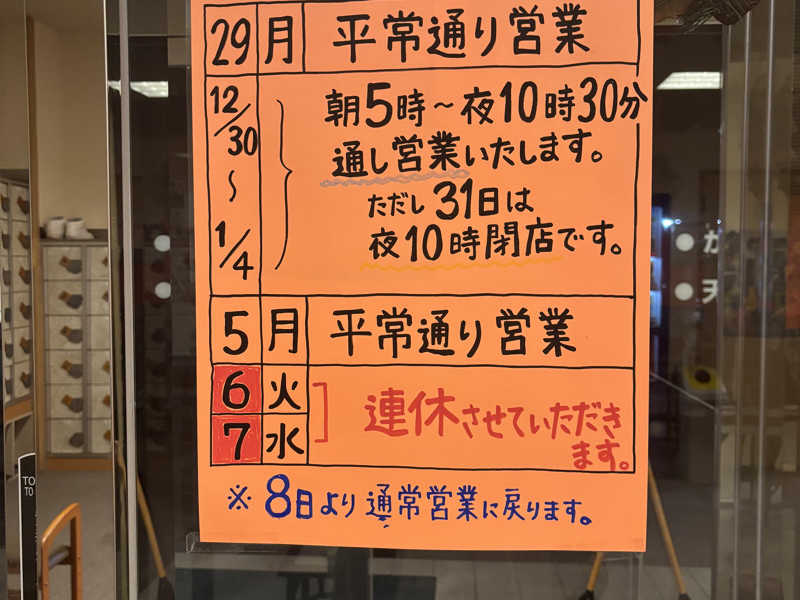 29 月 平常通り営業
12/30 〜 1/4
朝5時〜夜10時30分
通し営業いたします。
ただし31日は
夜10時閉店です。
5 月 平常通り営業
6 火
7 水
連休させていただき
ます。
※8日より通常営業に戻ります。
TO
TO